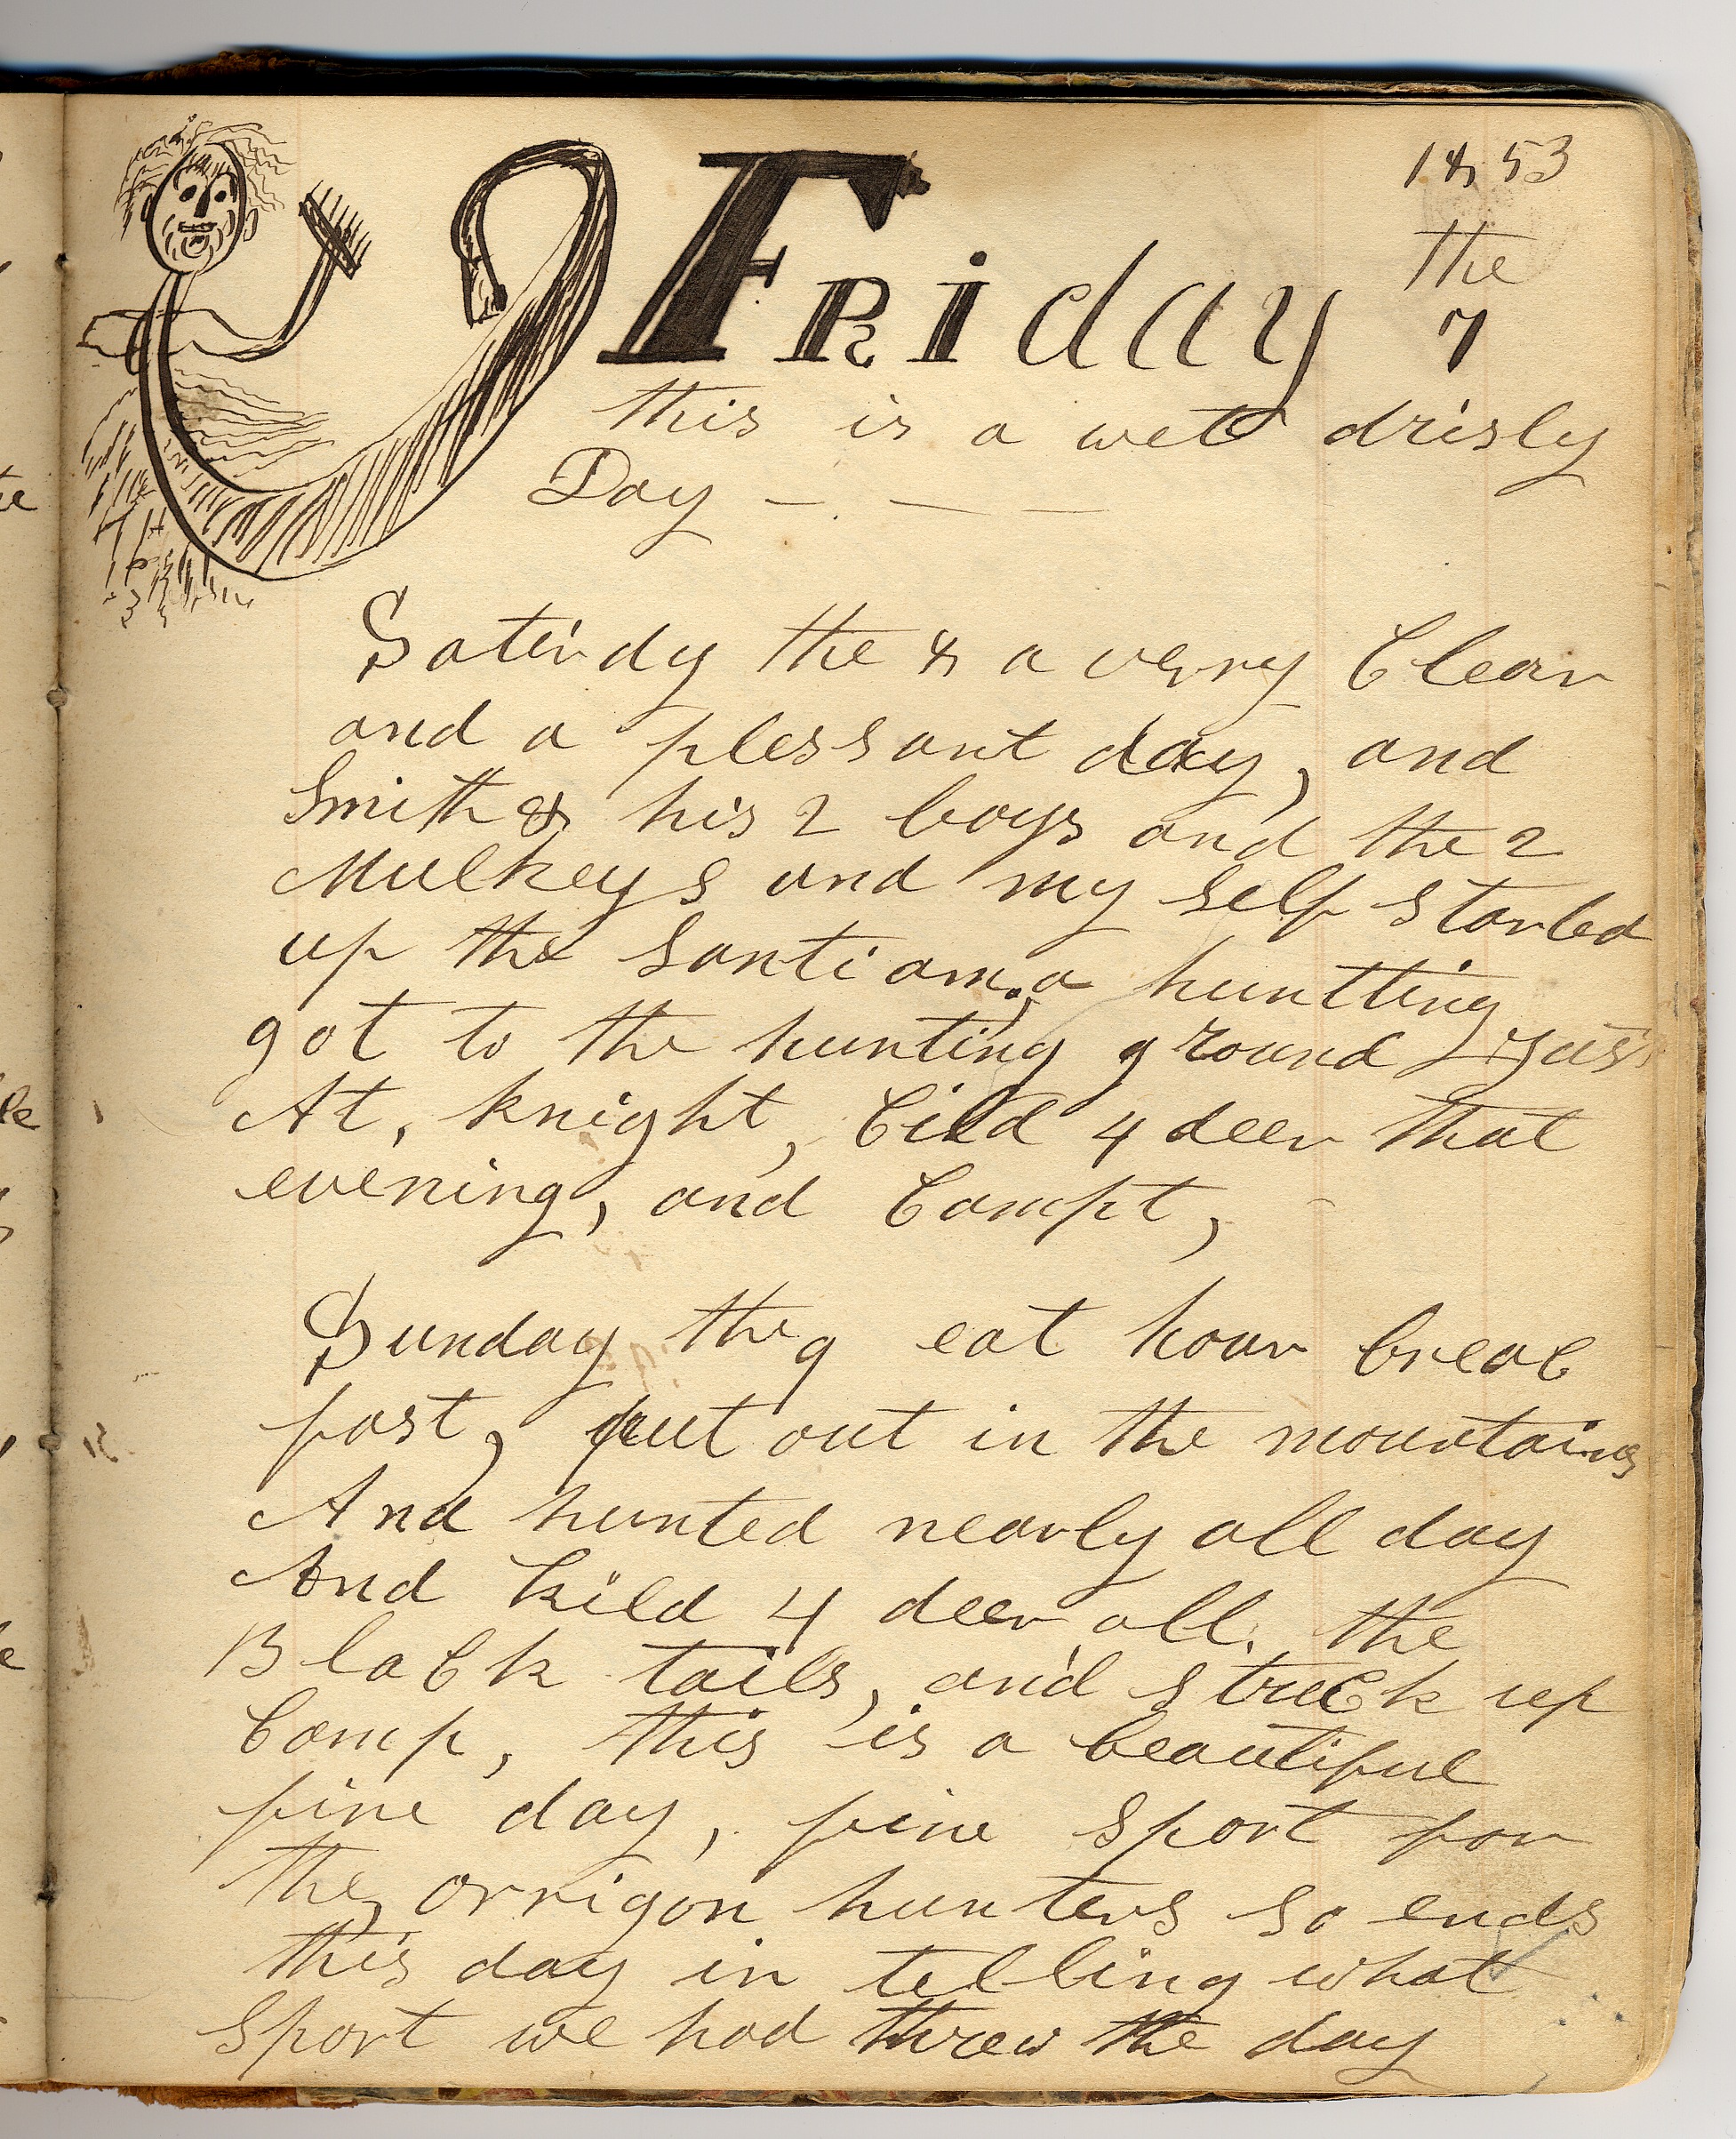 1853
Friday the
7
this is a wet drisly
Day - - -
Saterdy the 8 a verry Clear
and a plessant day, and
Smith & his 2 boys and the 2
Mulkeys and my self started
up the santiam, a huntting
got to the hunting ground just
At, knight, Cild 4 deer that
evening, and Campt,
Sunday the 9 eat hour breac
fast, put out in the mountains
And hunted nearly all day
And kild 4 deer all. the
Black tails, and struck up
Camp, this is a beautiful
fine day, fine sport for
the orrigon hunters so ends
this day in telling what
sport we had threw the day